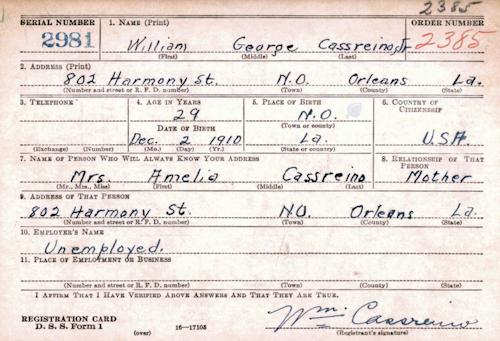 2385
SERIAL NUMBER 1. NAME (Print) ORDER NUMBER
2981 William George Cassreino Jr 2385
(First) (Middle) (Last)
2. ADDRESS (Print)
802 Harmony St. N.O. Orleans La.
(Number and street or R. F. D. number) (Town) (County) (State)
3. TELEPHONE 4. AGE IN YEARS 5. PLACE OF BIRTH 6. COUNTRY OF
CITIZENSHIP
29 N.O.
DATE OF BIRTH (Town or county)
Dec. 2 1910 La. U.S.A.
(Exchange) (Number) (Mo.) (Day) (Yr.) (State or country)
7. NAME OF PERSON WHO WILL ALWAYS KNOW YOUR ADDRESS 8. RELATIONSHIP OF THAT
PERSON
Mrs. Amelia Cassreino Mother
(Mr., Mrs., Miss) (First) (Middle) (Last)
9. ADDRESS OF THAT PERSON
802 Harmony St. N.O. Orleans La.
(Number and street or R. F. D. number) (Town) (County) (State)
10. EMPLOYER'S NAME
Unemployed.
11. PLACE OF EMPLOYMENT OR BUSINESS
(Number and street or R. F. D. number) (Town) (County) (State)
I AFFIRM THAT I HAVE VERIFIED ABOVE ANSWERS AND THAT THEY ARE TRUE.
REGISTRATION CARD
D. S. S. Form 1 (over) 16—17105 Wm. Cassreino
(Registrant's signature)